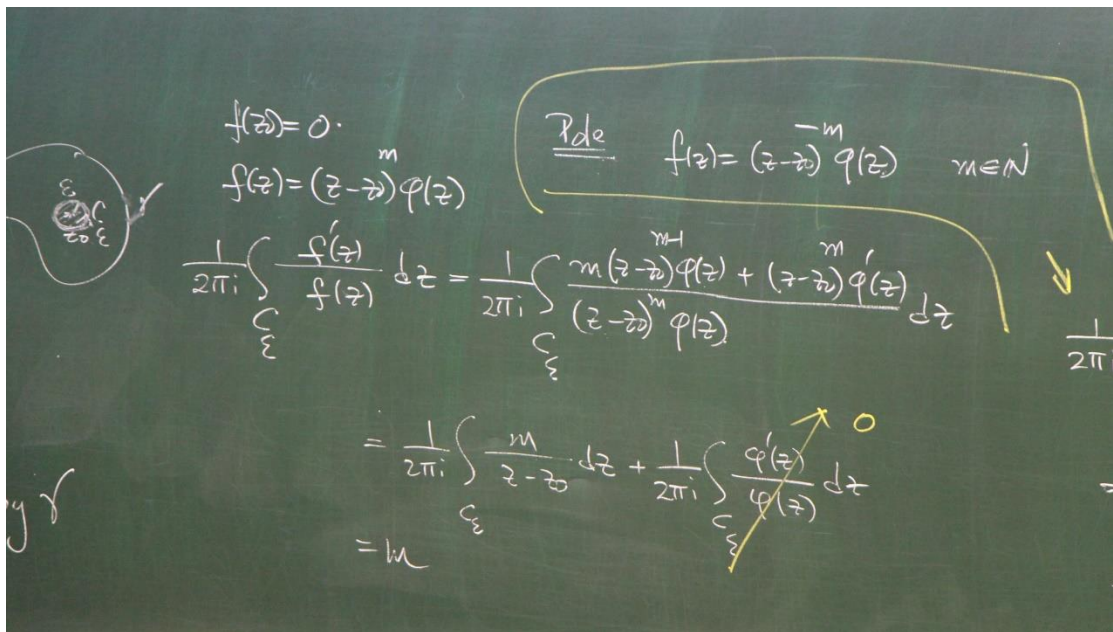 f(z₀) = 0.
f(z) = (z-z₀)^m φ(z)
Pole f(z) = (z-z₀)^{-m} φ(z) m∈ℕ
ε
C_ε
z₀
\frac{1}{2πi} ∫_{C_ε} \frac{f'(z)}{f(z)} dz = \frac{1}{2πi} ∫_{C_ε} \frac{m(z-z₀)^{m-1} φ(z) + (z-z₀)^m φ'(z)}{(z-z₀)^m φ(z)} dz
\frac{1}{2π
= \frac{1}{2πi} ∫_{C_ε} \frac{m}{z-z₀} dz + \frac{1}{2πi} ∫_{C_ε} \frac{φ'(z)}{φ(z)} dz 0
= m
y γ